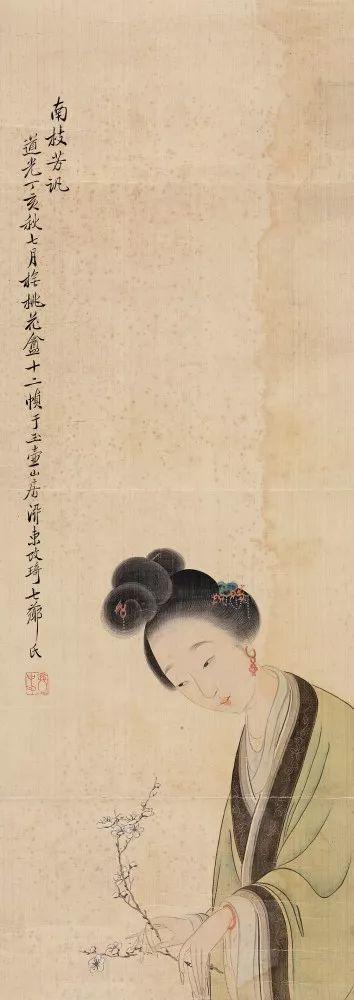 南枝芳訊
道光丁亥秋七月橅桃花盦十二幀于玉壺山房泙東改琦七薌氏